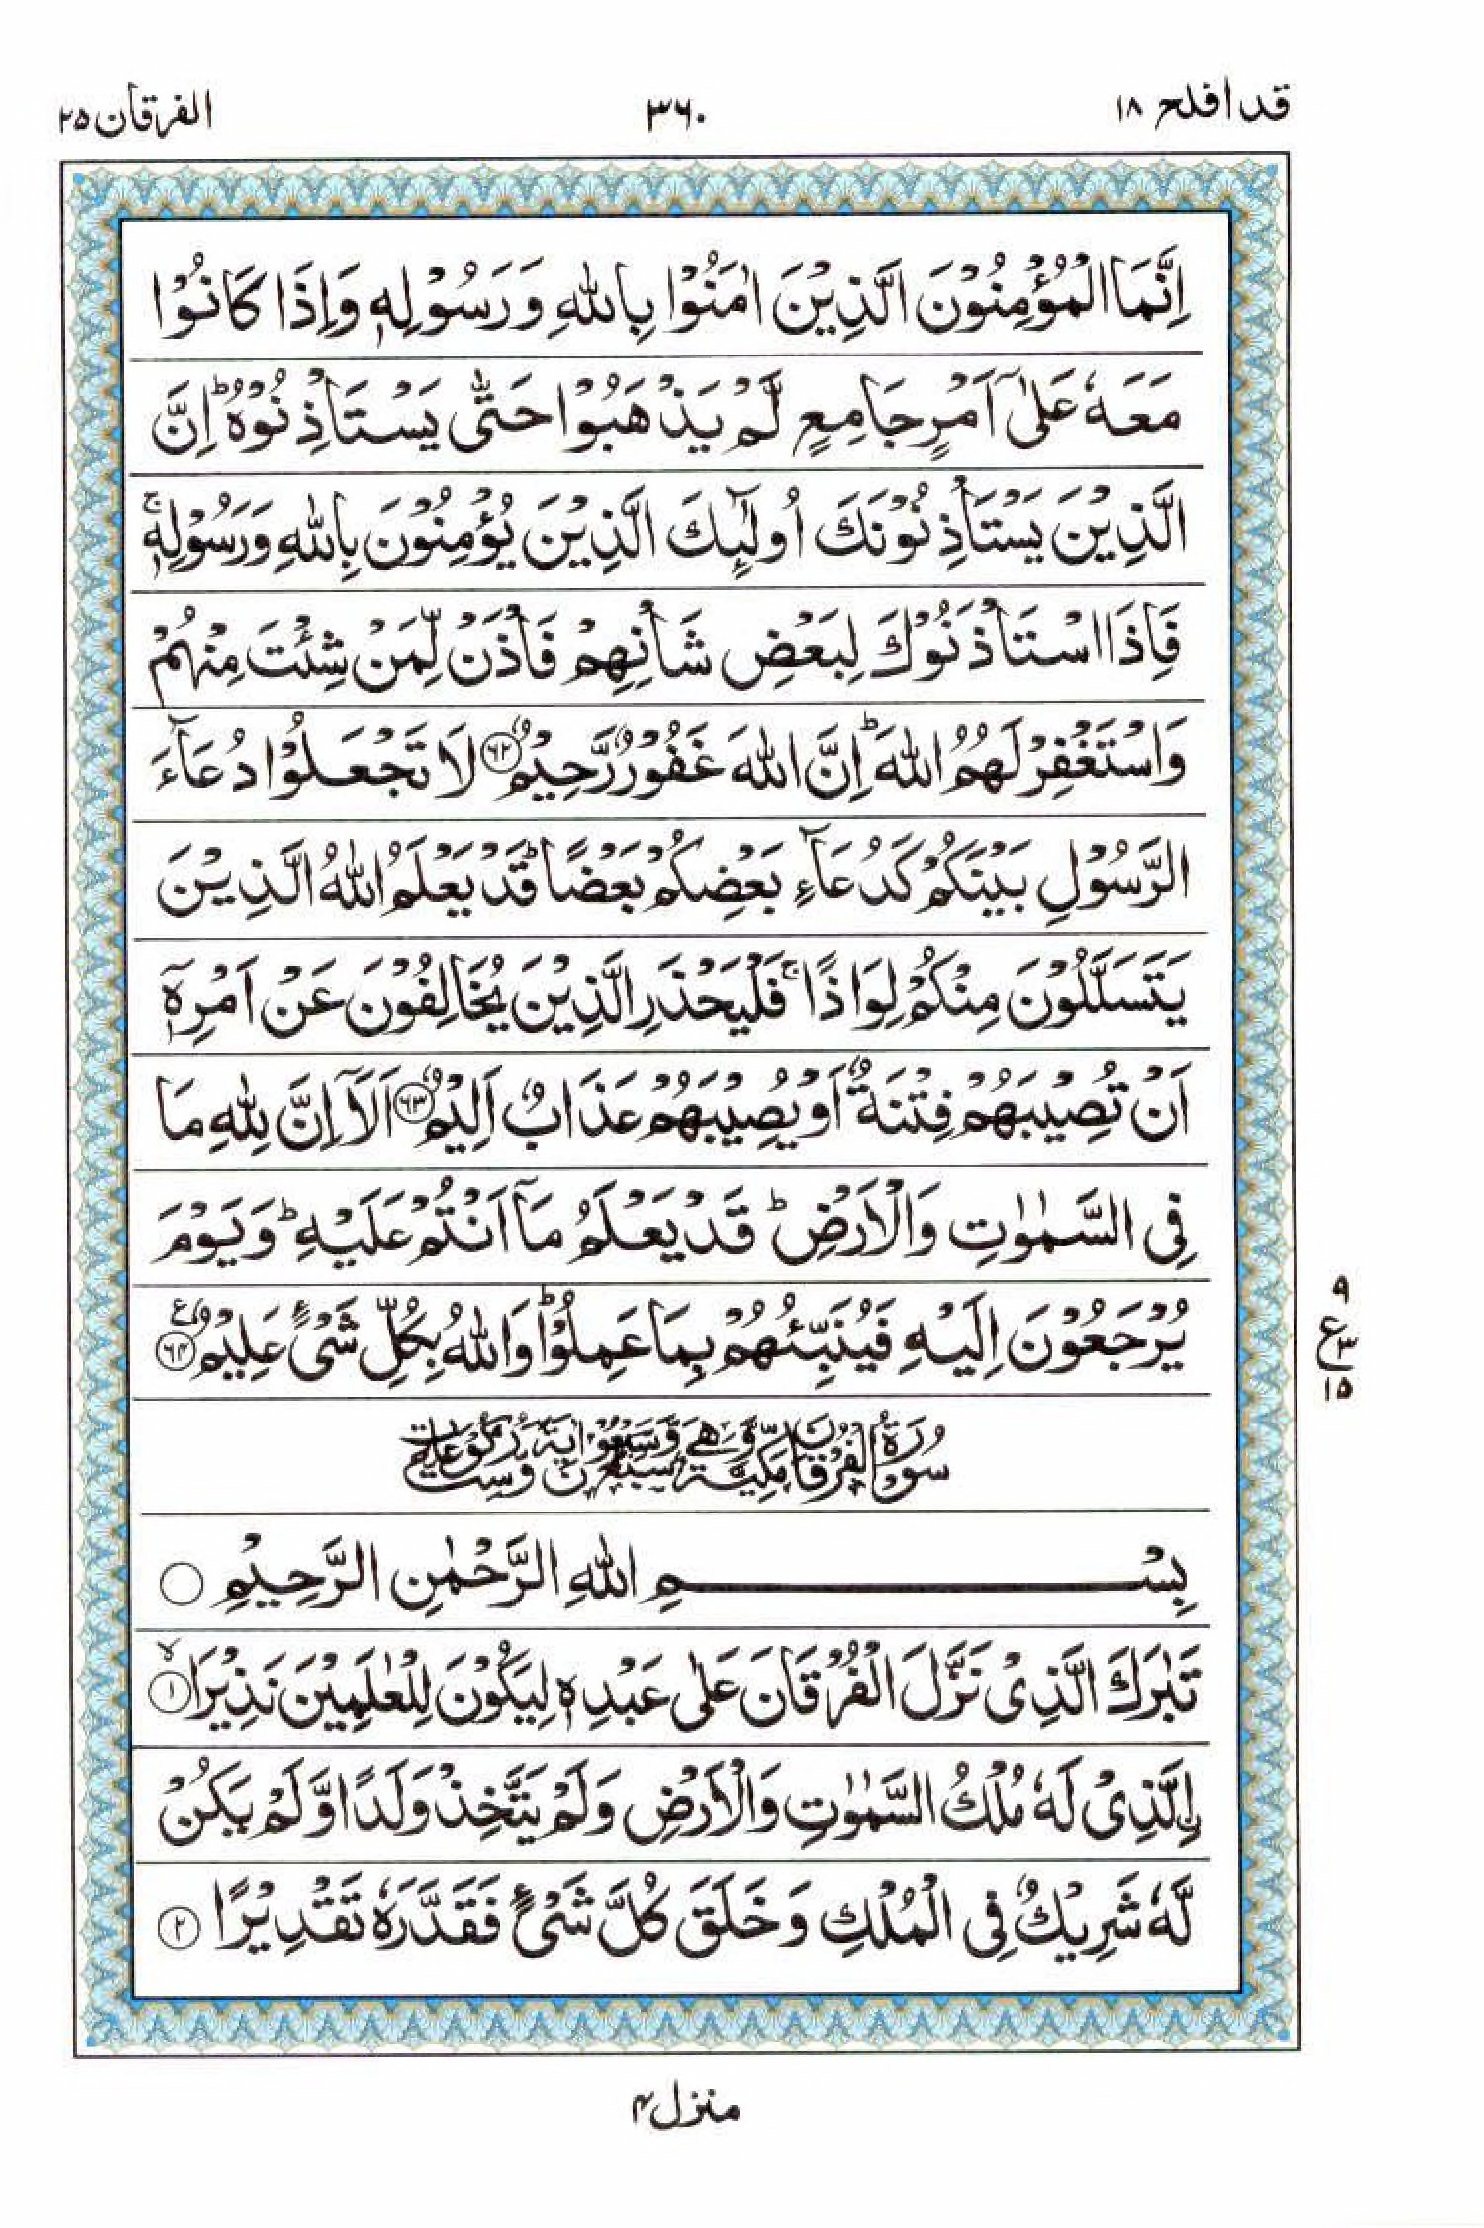 قد افلح ۱۸
۳۶۰
الفرقان ۲۵
اِنَّمَا الْمُؤْمِنُوْنَ الَّذِيْنَ اٰمَنُوْا بِاللّٰهِ وَرَسُوْلِهٖ وَاِذَا كَانُوْا
مَعَهٗ عَلٰٓى اَمْرٍ جَامِعٍ لَّمْ يَذْهَبُوْا حَتّٰى يَسْتَاْذِنُوْهُ ؕ اِنَّ
الَّذِيْنَ يَسْتَاْذِنُوْنَكَ اُولٰٓئِكَ الَّذِيْنَ يُؤْمِنُوْنَ بِاللّٰهِ وَرَسُوْلِهٖ ۚ
فَاِذَا اسْتَاْذَنُوْكَ لِبَعْضِ شَاْنِهِمْ فَاْذَنْ لِّمَنْ شِئْتَ مِنْهُمْ
وَاسْتَغْفِرْ لَهُمُ اللّٰهَ ؕ اِنَّ اللّٰهَ غَفُوْرٌ رَّحِيْمٌ ۶۲ لَا تَجْعَلُوْا دُعَآءَ
الرَّسُوْلِ بَيْنَكُمْ كَدُعَآءِ بَعْضِكُمْ بَعْضًا ؕ قَدْ يَعْلَمُ اللّٰهُ الَّذِيْنَ
يَتَسَلَّلُوْنَ مِنْكُمْ لِوَاذًا ۚ فَلْيَحْذَرِ الَّذِيْنَ يُخَالِفُوْنَ عَنْ اَمْرِهٖٓ
اَنْ تُصِيْبَهُمْ فِتْنَةٌ اَوْ يُصِيْبَهُمْ عَذَابٌ اَلِيْمٌ ۶۳ اَلَاۤ اِنَّ لِلّٰهِ مَا
فِى السَّمٰوٰتِ وَالْاَرْضِ ؕ قَدْ يَعْلَمُ مَاۤ اَنْتُمْ عَلَيْهِ ؕ وَيَوْمَ
يُرْجَعُوْنَ اِلَيْهِ فَيُنَبِّئُهُمْ بِمَا عَمِلُوْا ؕ وَاللّٰهُ بِكُلِّ شَىْءٍ عَلِيْمٌ ۶۴
۹
ع ۳
۱۵
سُوْرَةُ الْفُرْقَانِ مَكِّيَّةٌ وَّهِيَ سَبْعٌ وَّسَبْعُوْنَ اٰيَةً وَّسِتُّ رُكُوْعَاتٍ
بِسْمِ اللّٰهِ الرَّحْمٰنِ الرَّحِيْمِ
تَبٰرَكَ الَّذِىْ نَزَّلَ الْفُرْقَانَ عَلٰى عَبْدِهٖ لِيَكُوْنَ لِلْعٰلَمِيْنَ نَذِيْرَا ۙ ۱
ۨالَّذِىْ لَهٗ مُلْكُ السَّمٰوٰتِ وَالْاَرْضِ وَلَمْ يَتَّخِذْ وَلَدًا وَّلَمْ يَكُنْ
لَّهٗ شَرِيْكٌ فِى الْمُلْكِ وَخَلَقَ كُلَّ شَىْءٍ فَقَدَّرَهٗ تَقْدِيْرًا ۲
منزل ۴